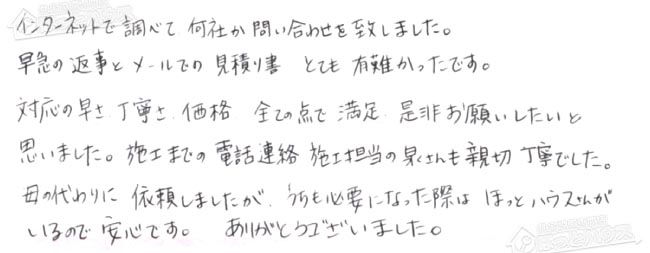 インターネットで調べて何社か問い合わせを致しました。
早急の返事とメールでの見積り書 とても有難かったです。
対応の早さ、丁寧さ、価格 全ての点で満足、是非お願いしたいと
思いました。施工までの電話連絡 施工担当の泉さんも親切丁寧でした。
母の代わりに依頼しましたが、うちも必要になった際は ほっとハウスさんが
いるので安心です。 ありがとうございました。